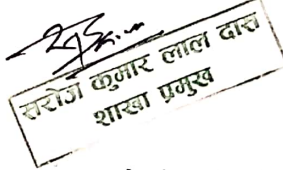 सरोज कुमार लाल दास
शाखा प्रमुख